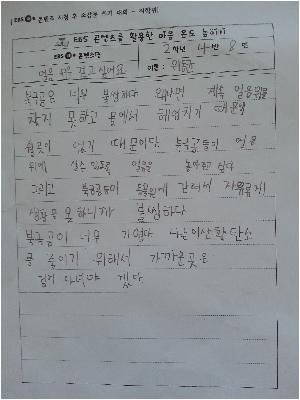 EBS 콘텐츠 시청 후 소감문 쓰기 대회 - 저학년
EBS 콘텐츠를 활용한 마음 온도 높이기
EBS 콘텐츠명
2학년 4반 8번
얼음 위를 걷고 싶어요
이름:
북극곰은 너무 불쌍하다 왜냐면 계속 얼음위를
걷지 못하고 물에서 헤엄치기 때문에
얼음이 없기 때문이다 북극곰들이 얼음
위에 살수 있도록 얼음을 놓아주고 싶다
그리고 북극곰들이 동물원에 갇혀서 자유롭지
생활을 못하니까 불쌍하다
북극곰이 너무 가엽다 나는 이산화탄소
를 줄이기 위해서 가까운곳은
걸어 다녀야 겠다